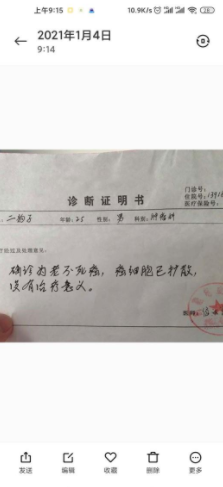 上午9:15
10.9K/s
2021年1月4日
9:14
诊断证明书
门诊号:
住院号:
医疗保险号:
二狗子
年龄: 25 性别: 男 科别: 肿瘤科
确诊为老不死癌，癌细胞已扩散，
没有治疗意义。
发送 编辑 收藏 删除 更多